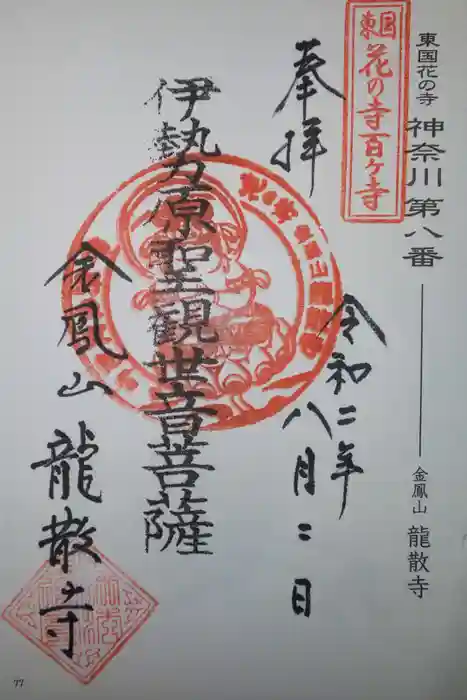 東国花の寺 神奈川第八番 金鳳山 龍散寺
東国
花の寺百ヶ寺
奉拝
令和二年
八月二日
伊勢原聖観世音菩薩
金鳳山
龍散寺
77